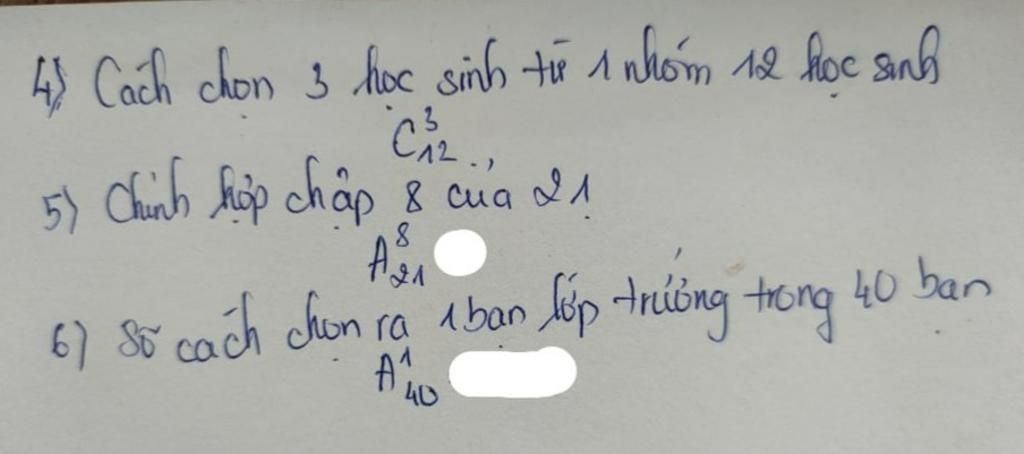 4) Cách chọn 3 học sinh từ 1 nhóm 12 học sinh
C³₁₂
5) Chỉnh hợp chập 8 của 21
A⁸₂₁
6) Số cách chọn ra 1 bạn lớp trưởng trong 40 bạn
A¹₄₀